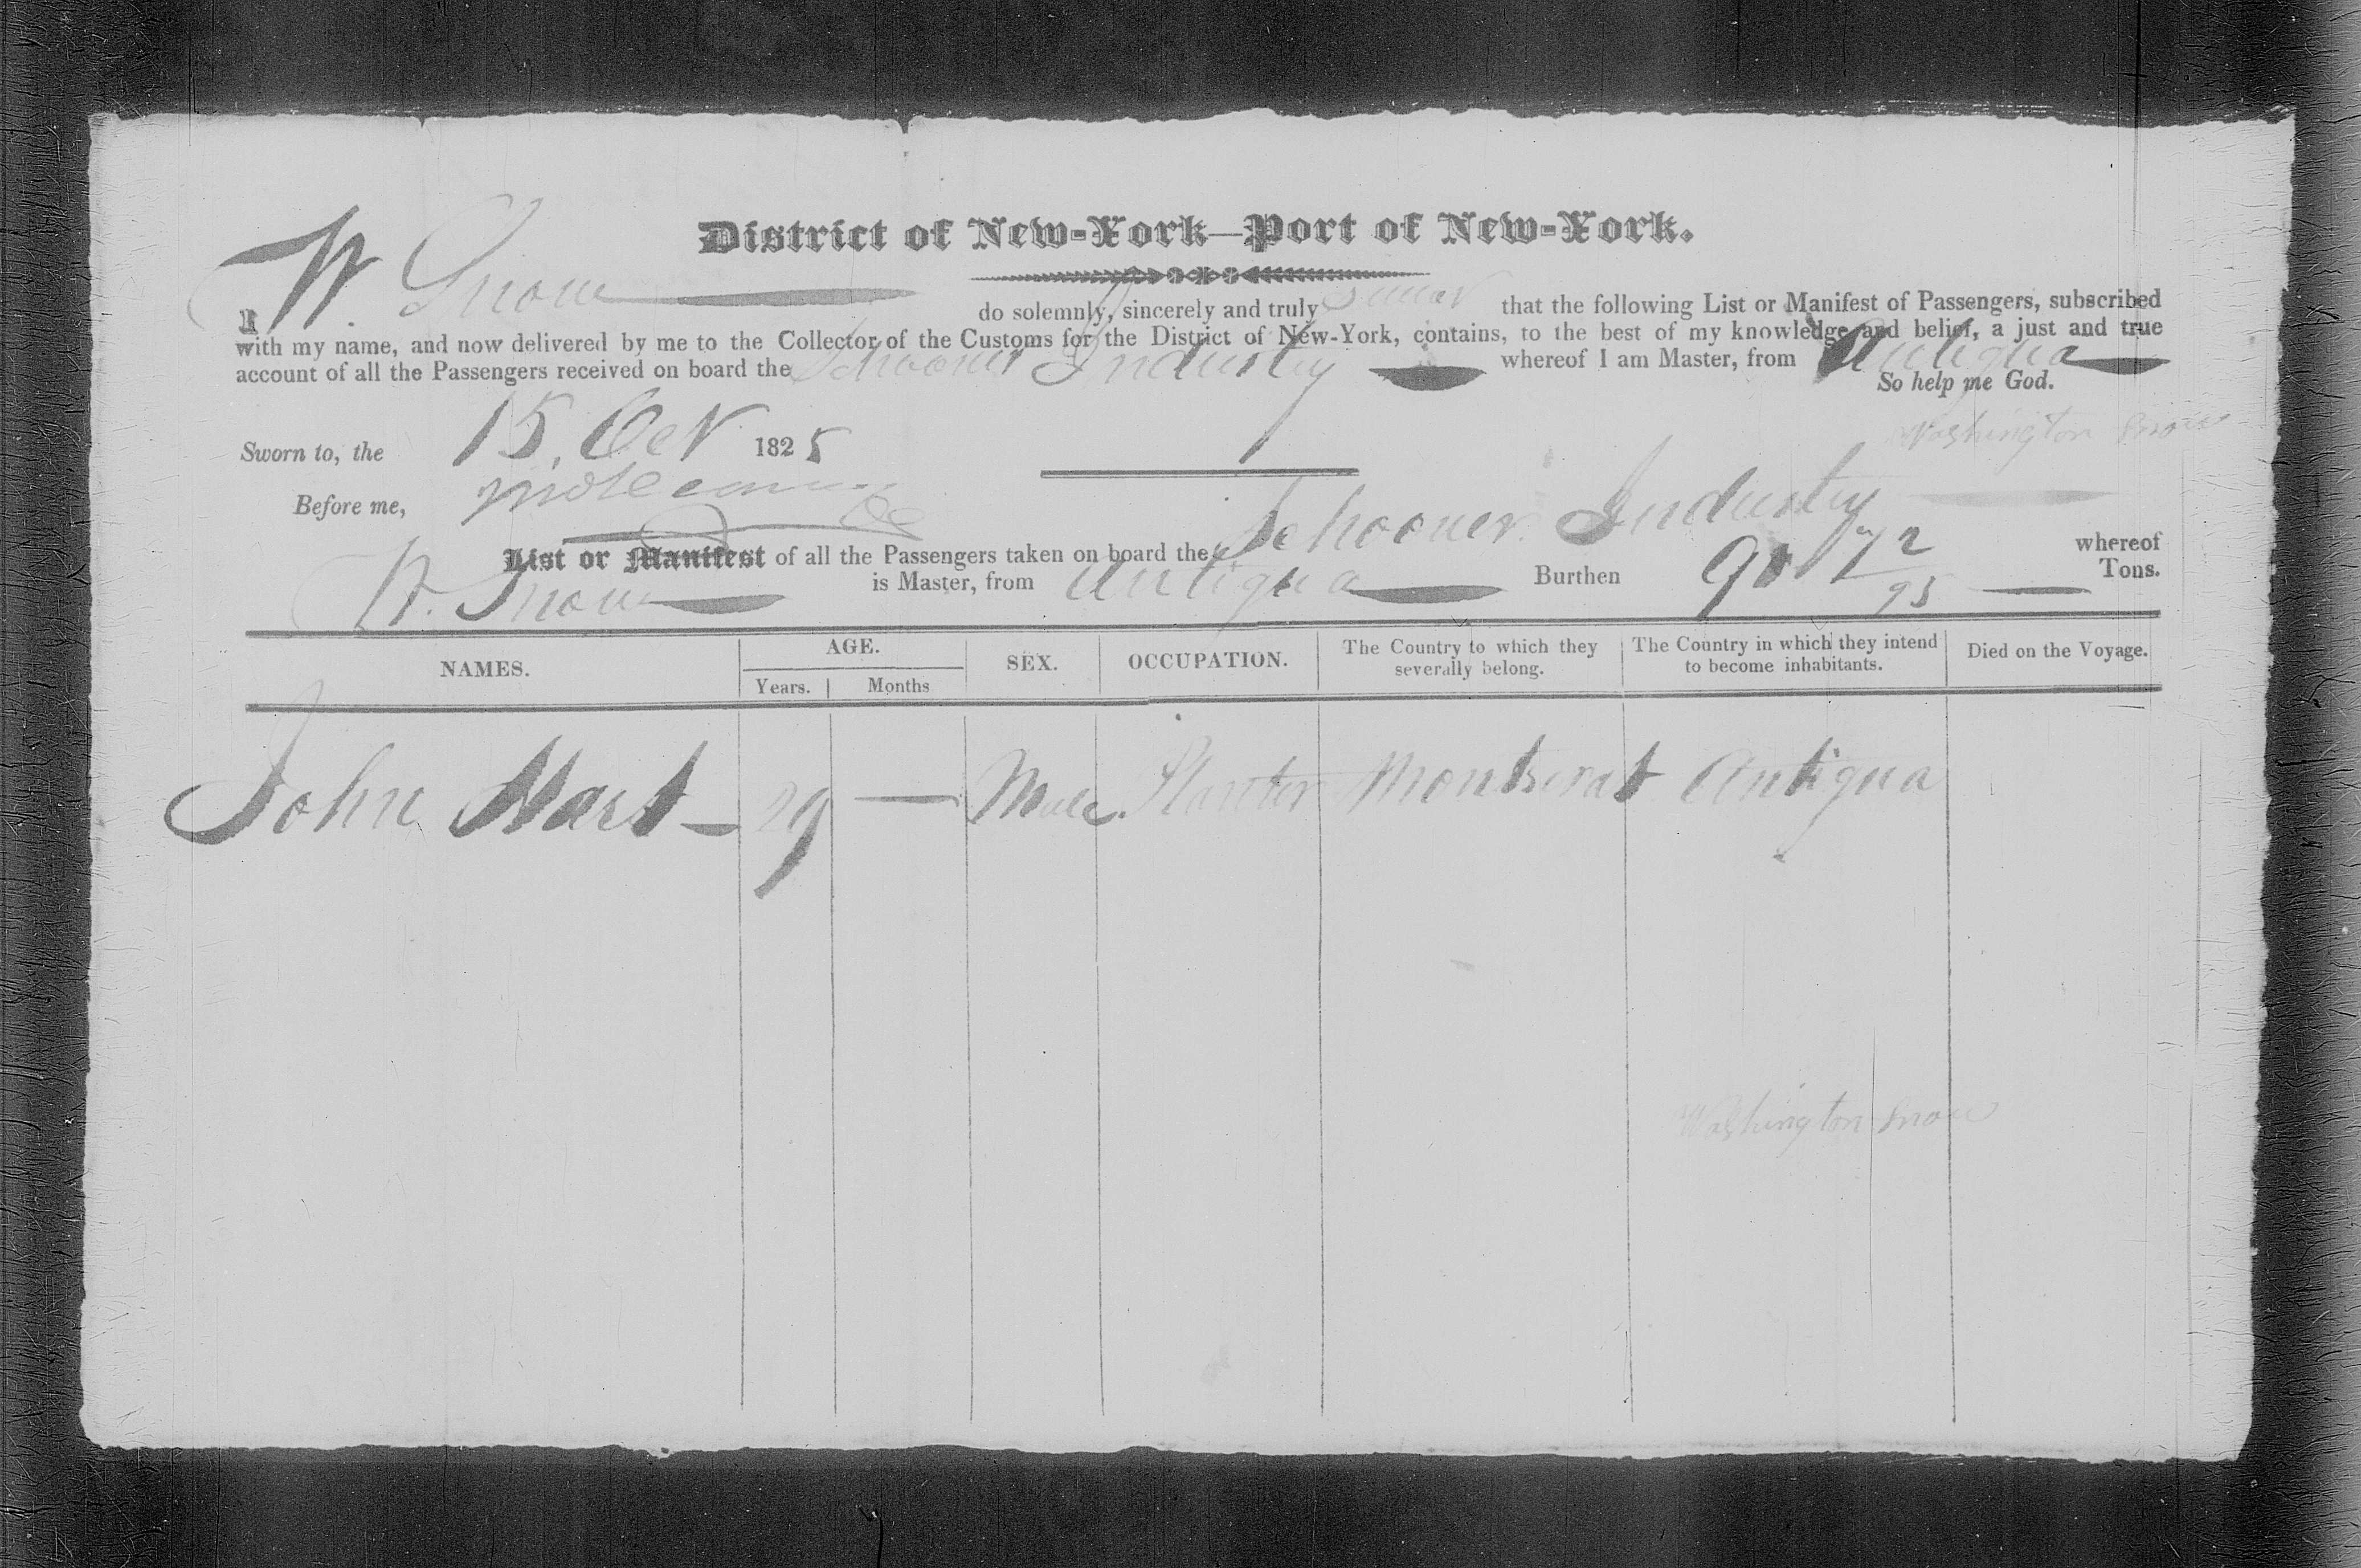 District of New-York—Port of New-York.
I W. Snow do solemnly, sincerely and truly swear that the following List or Manifest of Passengers, subscribed
with my name, and now delivered by me to the Collector of the Customs for the District of New-York, contains, to the best of my knowledge and belief, a just and true
account of all the Passengers received on board the Schooner Industry whereof I am Master, from Antigua
So help me God.
Sworn to, the 15. Oct 1825
Washington Snow
Before me,
List or Manifest of all the Passengers taken on board the Schooner Industry whereof
W. Snow is Master, from Antigua Burthen 90 72/95 Tons.
NAMES. AGE. SEX. OCCUPATION. The Country to which they severally belong. The Country in which they intend to become inhabitants. Died on the Voyage.
Years. Months
John Hart 29 — Male. Planter Montserat Antigua
Washington Snow